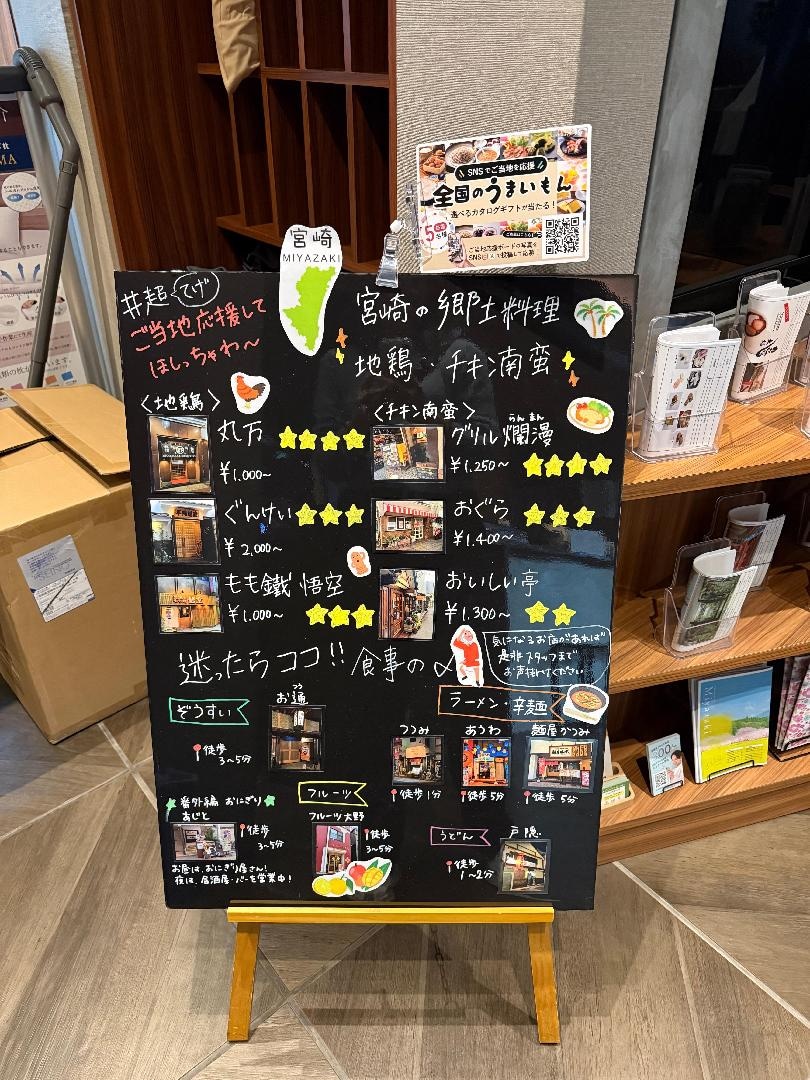 SNSでご当地を応援
全国のうまいもん
選べるカタログギフトが当たる!
ご当地応援ボードの写真を
宮崎
MIYAZAKI
#超 てげ
ご当地応援して
ほしっちゃわ〜
宮崎の郷土料理
地鶏・チキン南蛮
〈地鶏〉
丸万
¥1.000〜
ぐんけい
¥2,000〜
もも鐵 悟空
¥1.000〜
〈チキン南蛮〉
らんまん
グリル爛漫
¥1.250〜
おぐら
¥1.400〜
おいしい亭
¥1.300〜
迷ったらココ!! 食事の〆
気になるお店があれば
是非スタッフまで
お声掛けください
ぞうすい
つう
お通
徒歩
3〜5分
ラーメン・辛麺
つづみ
徒歩1分
あかつ
徒歩5分
麺屋かつみ
徒歩 5分
番外編 おにぎり
あじと
徒歩
3〜5分
お昼は、おにぎり屋さん!
夜は、居酒屋・バーを営業中!
フルーツ
フルーツ大野
徒歩
3〜5分
うどん
戸隠
徒歩
1〜2分
Miyazaki